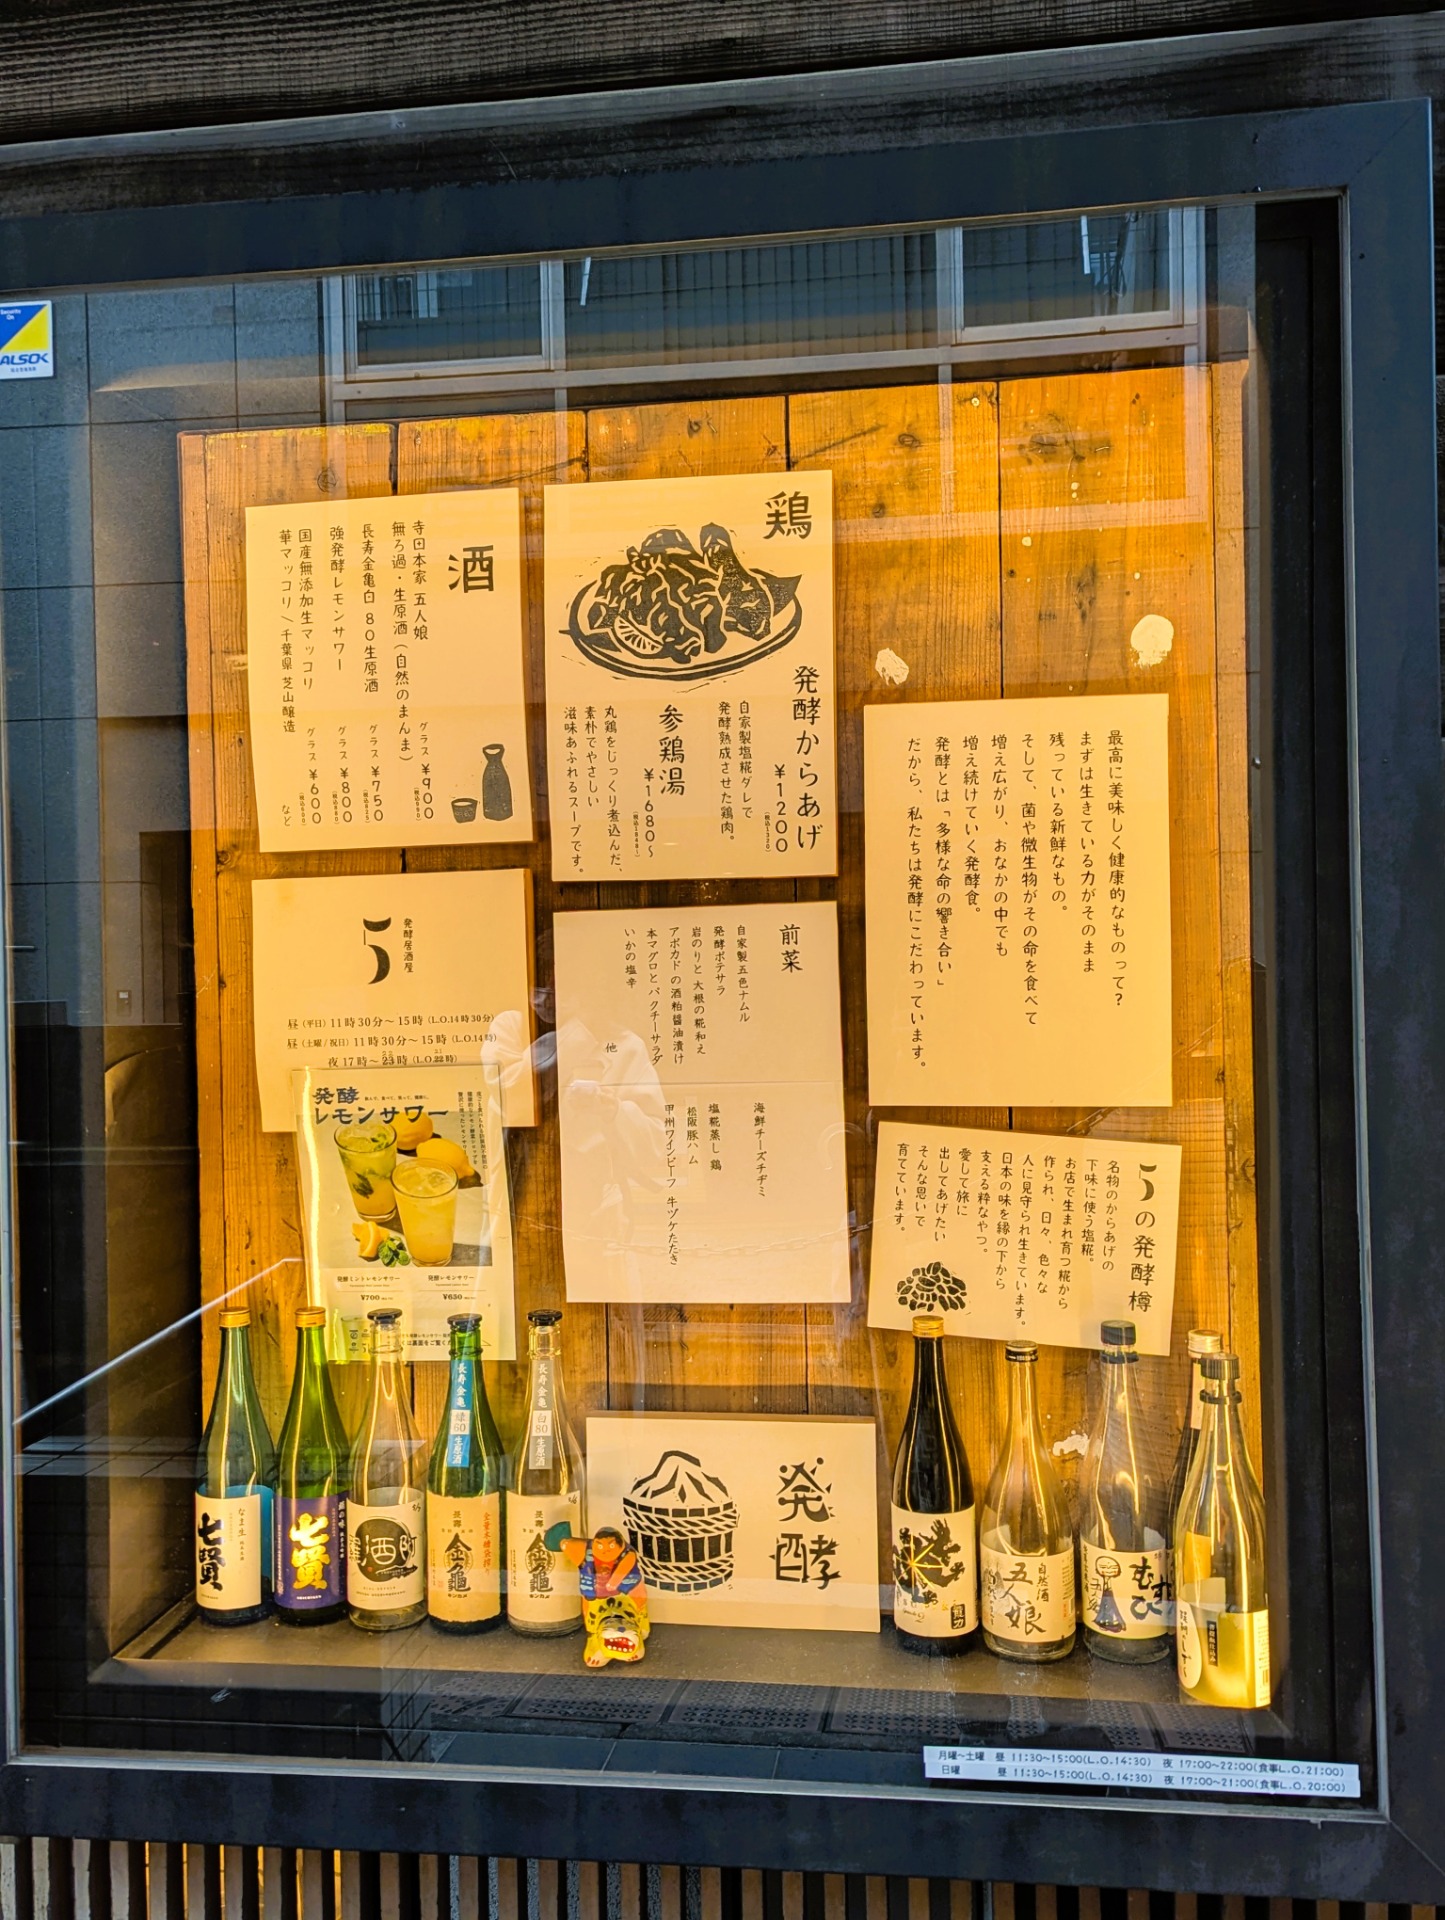 Security On
ALSOK
酒
寺田本家 五人娘
無ろ過・生原酒(自然のまんま)
グラス ¥900
(税込990)
長寿金亀白 80生原酒
グラス ¥750
(税込825)
強発酵レモンサワー
グラス ¥800
(税込880)
国産無添加生マッコリ
華マッコリ\千葉県 芝山醸造
グラス ¥600
など
鶏
発酵からあげ
¥1200
(税込1320)
自家製塩糀ダレで
発酵熟成させた鶏肉。
参鶏湯
¥1680〜
(税込1848〜)
丸鶏をじっくり煮込んだ、
素朴でやさしい
滋味あふれるスープです。
最高に美味しく健康的なものって?
まずは生きている力がそのまま
残っている新鮮なもの。
そして、菌や微生物がその命を食べて
増え広がり、おなかの中でも
増え続けていく発酵食。
発酵とは「多様な命の響き合い」
だから、私たちは発酵にこだわっています。
発酵居酒屋
5
昼(平日)11時30分〜15時(L.O.14時30分)
昼(土曜/祝日)11時30分〜15時(L.O.14時)
夜 17時〜23時(L.O.22時)
前菜
自家製五色ナムル
発酵ポテサラ
岩のりと大根の糀和え
アボカドの酒粕醤油漬け
本マグロとパクチーサラダ
いかの塩辛
他
海鮮チーズチヂミ
塩糀蒸し鶏
松阪豚ハム
甲州ワインビーフ 牛ヅケたたき
5の発酵樽
名物のからあげの
下味に使う塩糀。
お店で生まれ育つ糀から
作られ、日々、色々な
人に見守られ生きています。
日本の味を縁の下から
支える粋なやつ。
愛して旅に
出してあげたい
そんな思いで
育てています。
発酵
レモンサワー
発酵ミントレモンサワー
¥700
発酵レモンサワー
¥650
は裏面をご覧くだ
なま生
七賢
七賢
酒
長寿金亀
緑
60
生原酒
長寿
金亀
キンカメ
長寿金亀
白
80
生原酒
長寿
金亀
キンカメ
発酵
龍力
自然酒
五人娘
むすひ
月曜〜土曜 昼 11:30〜15:00(L.O.14:30) 夜 17:00〜22:00(食事L.O.21:00)
日曜 昼 11:30〜15:00(L.O.14:30) 夜 17:00〜21:00(食事L.O.20:00)